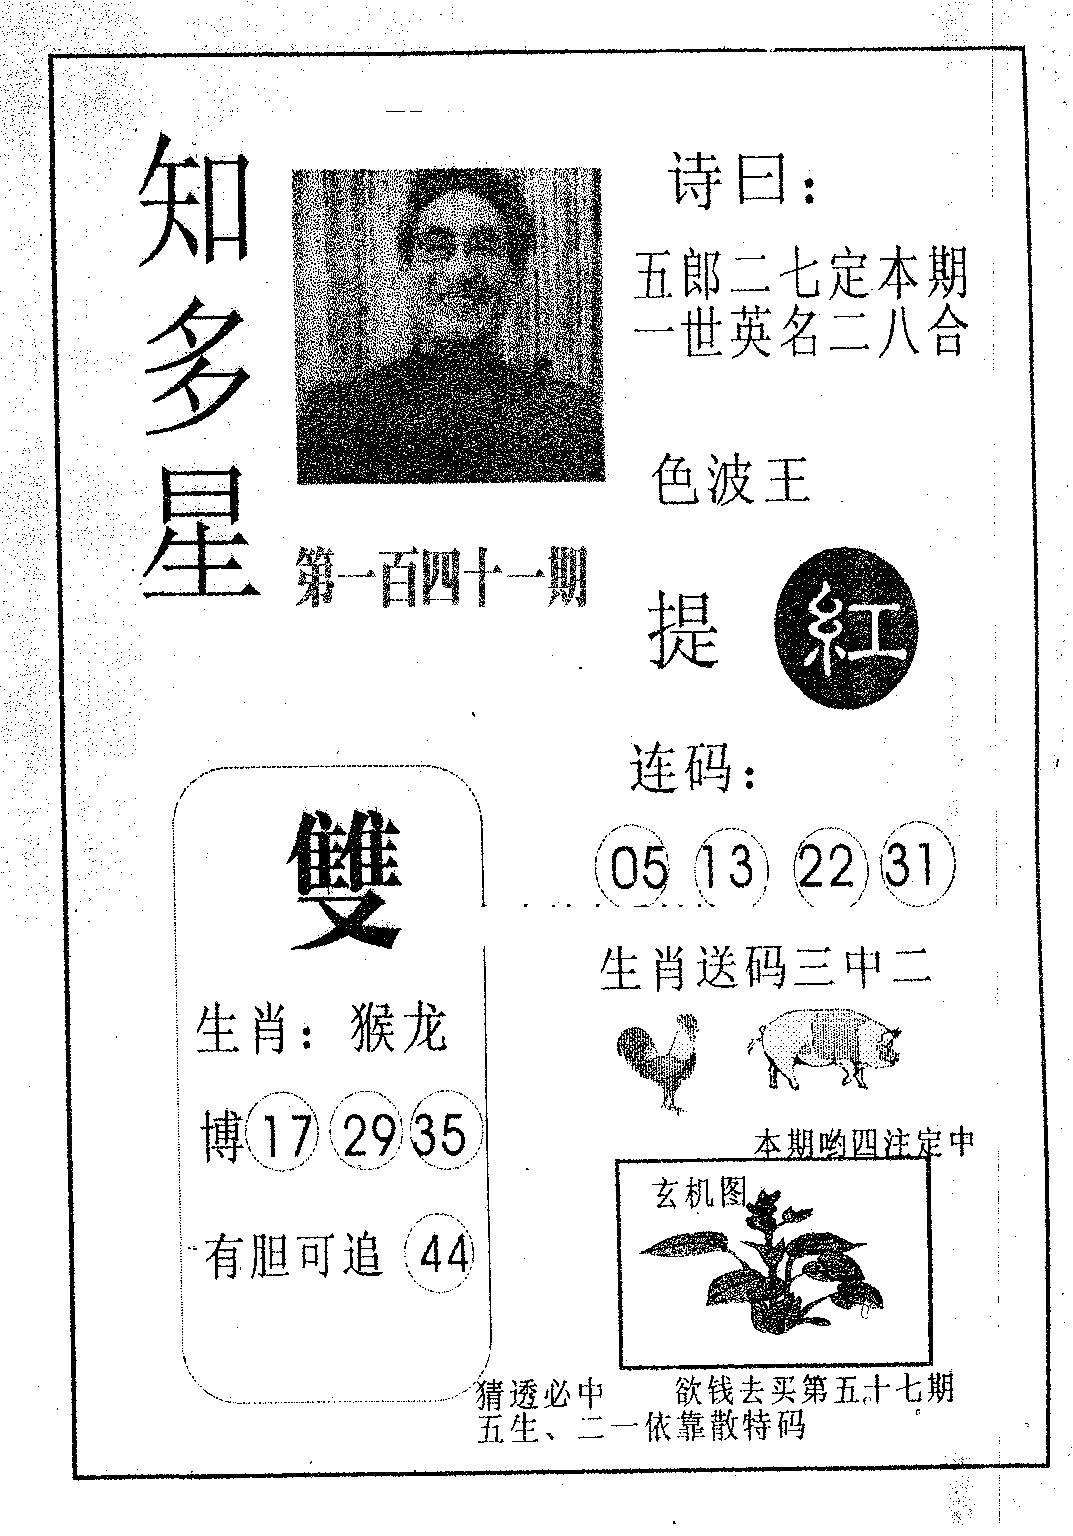 知多星
第一百四十一期
诗曰：
五郎二七定本期
一世英名二八合
色波王
提 紅
连码：
05 13 22 31
生肖送码三中二
本期哟四注定中
玄机图
雙
生肖：猴龙
博 17 29 35
有胆可追 44
猜透必中 欲钱去买第五十七期
五生、二一依靠散特码